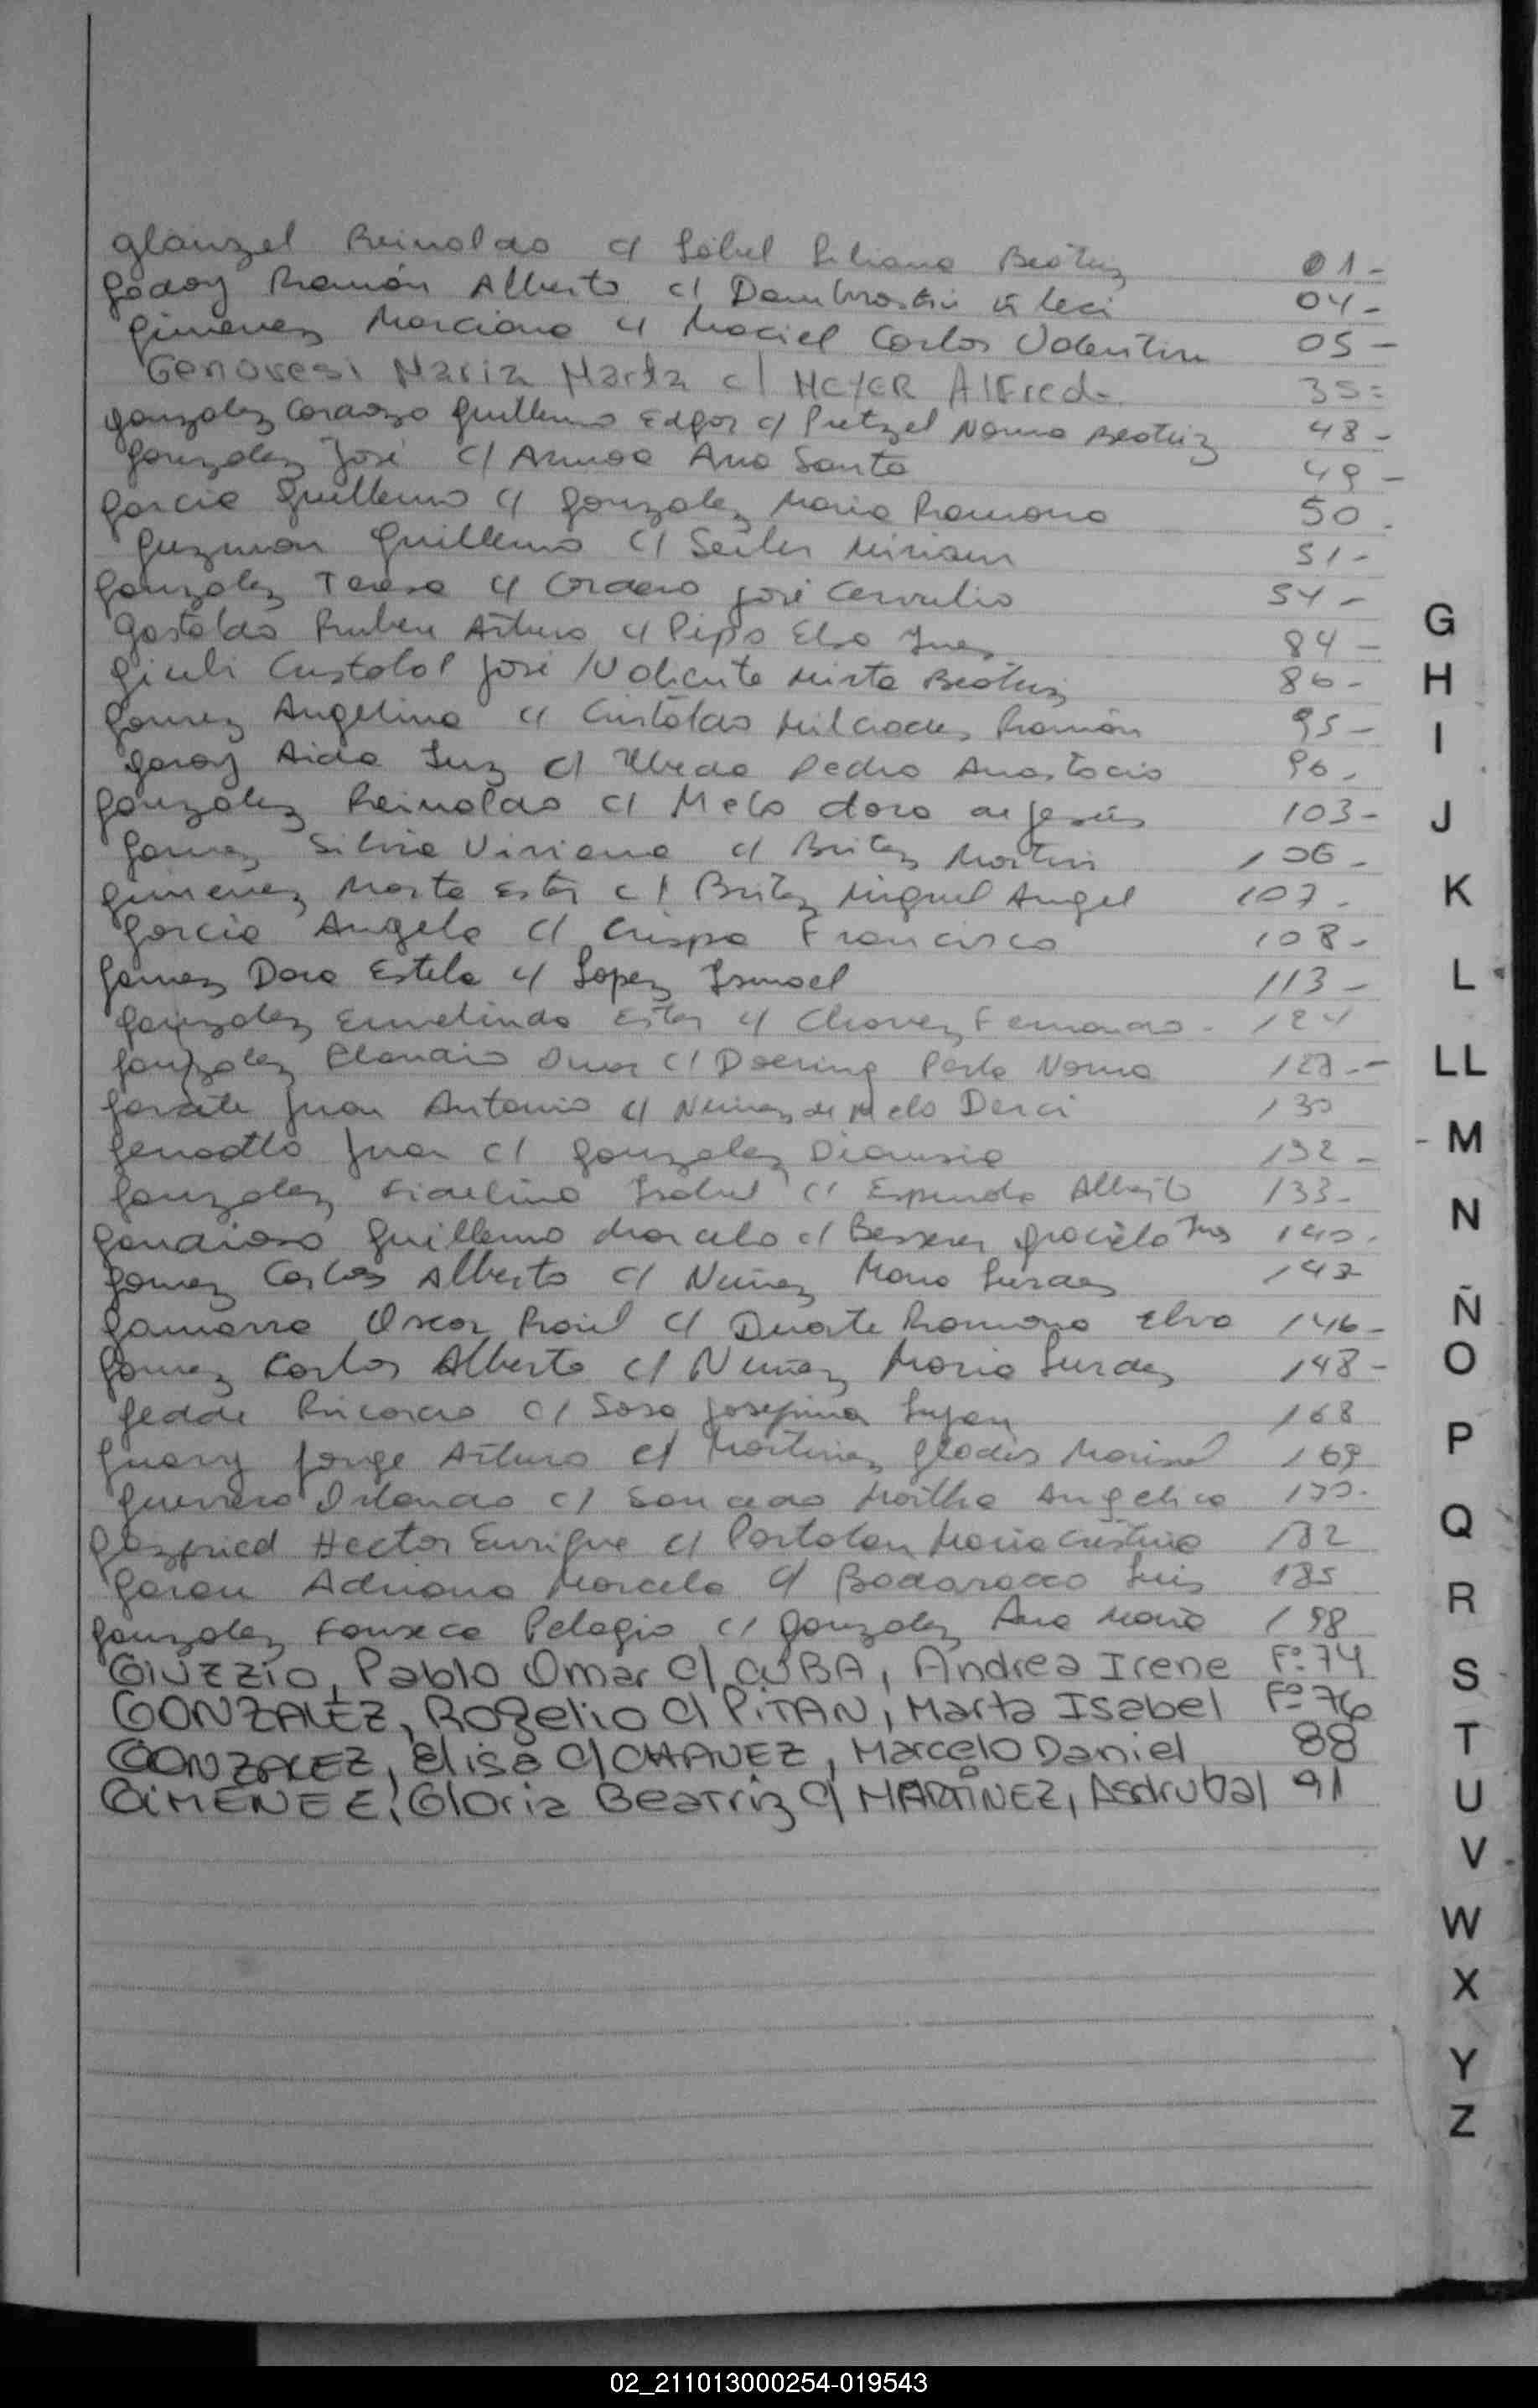 Glanzel Reinoldo c/ Sobel Liliana Beatriz 01-
Godoy Ramón Alberto c/ Dambroski 04-
Gimenez Marciana c/ Maciel Carlos Valentin 05-
Genovesi Maria Marta c/ MEYER Alfredo 35=
Gonzalez Cardozo Guillermo Edgar c/ Pretzel Norma Beatriz 48-
Gonzalez José c/ Ana Santa 49-
Garcia Guillermo c/ Gonzalez Maria Ramona 50.
Guzman Guillermo c/ Seiler Miriam 51-
Gonzalez Teresa c/ Cordero José 54-
Gastaldo Ruben Arturo c/ Pipo Elsa Ines 84-
Giuli José / Valiente Mirta Beatriz 86-
Gomez Angelina c/ Cristaldo Milciades Ramón 95-
Garay Aida Luz c/ Ubeda Pedro Anastacio 96.
González Reinoldo c/ Melo dora de Jesús 103-
Gomez Silvia Viviana c/ Britez Martin 106-
Gimenez Marta Ester c/ Britez Miguel Angel 107.
Garcia Angela c/ Crispa Francisco 108-
Gomez Dora Estela c/ Lopez Ismael 113-
Gonzalez Ermelinda Ester c/ Chavez Fernando- 124
Gonzalez Claudio Omar c/ Doering Perla Norma
Garate Juan Antonio c/ Nuñez de Melo Derci 130
Juan c/ Gonzalez Dionisia 132-
Gonzalez Fidelina Isabel c/ Espindola Alberto 133-
Gandioso Guillermo Marcelo c/ Besserer Graciela Ines 140.
Gomez Carlos Alberto c/ Nuñez Maria Lurdes
Gamarra Oscar Raúl c/ Duarte Ramona Elva 146-
Gomez Carlos Alberto c/ Nuñez Maria Lurdes 148-
Gedde Ricardo c/ Sosa Josefina Lujan 168
Guary Jorge Arturo c/ Martinez Gladis Marisel 169
Guerrero Orlando c/ Martha Angelica
Hector Enrique c/ Portolan Maria Cristina 182
Garau Adriana Marcela c/ Badaracco Luis 185
Gonzalez Fonseca Pelagio c/ Gonzalez Ana Maria 198
GIUZZIO, Pablo Omar c/ CUBA, Andrea Irene Fº.74
GONZALEZ, Rogelio c/ PITAN, Marta Isabel Fº 76
GONZALEZ, Elisa c/ CHAVEZ, Marcelo Daniel 88
GIMENEZ, Gloria Beatriz c/ MARTINEZ, Asdrubal 91
G
H
I
J
K
L
LL
M
N
Ñ
O
P
Q
R
S
T
U
V
W
X
Y
Z
02_211013000254-019543